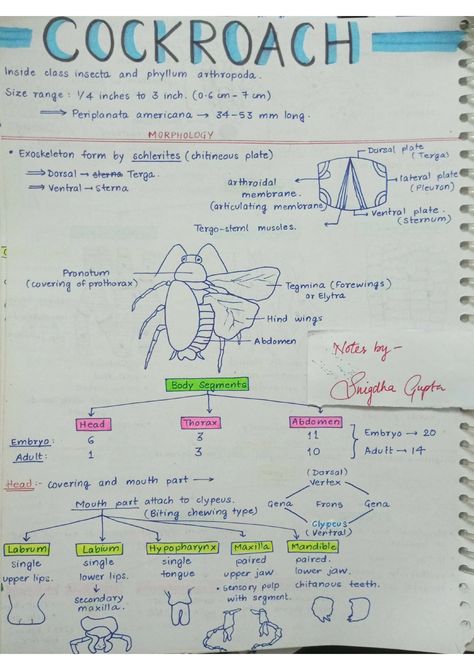 COCKROACH
Inside class insecta and phyllum arthropoda.
Size range : 1/4 inches to 3 inch. (0.6 cm - 7 cm)
⟹ Periplanata americana → 34-53 mm long.
MORPHOLOGY
• Exoskeleton form by schlerites (chitineous plate)
⟹ Dorsal → sterna Terga.
⟹ Ventral → sterna
Dorsal plate
(Terga)
arthroidal
membrane.
(articulating membrane)
lateral plate
(Pleuron)
Ventral plate.
(Sternum)
Tergo-sternl muscles.
Pronotum
(covering of prothorax)
Tegmina (Forewings)
or Elytra
Hind wings
Abdomen
Notes by -
Snigdha Gupta
Body Segments
Head Thorax Abdomen
Embryo: 6 3 11 Embryo → 20
Adult: 1 3 10 Adult → 14
Head:- covering and mouth part →
(Dorsal)
Vertex
Gena Frons Gena
Clypeus
(Ventral)
Mouth part attach to clypeus.
(Biting chewing type)
Labrum Labium Hypopharynx Maxilla Mandible
single single single paired paired.
upper lips. lower lips. tongue upper jaw lower jaw.
secondary
maxilla.
• Sensory pulp
with segment.
chitanous teeth.